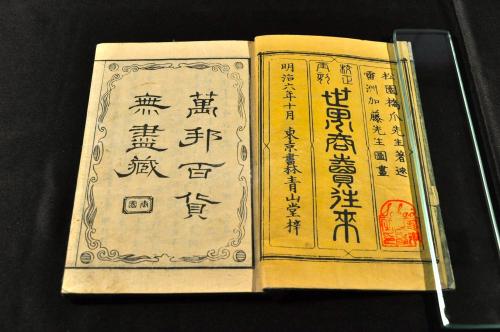 松園橋爪先生著述
雪洲加藤先生圖畫
校正
再刻
世界商賣往來
明治六年十月
東京書林青山堂梓
萬邦百貨
無盡藏